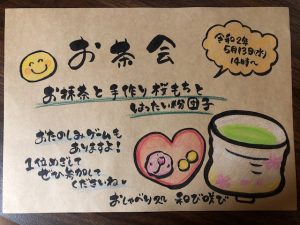 お茶会
令和2年
5月13日(水)
14時～
お抹茶と手作り桜もちと
はったい粉団子
おたのしみゲームも
ありますよ!
1位めざして
ぜひ参加して
くださいね
おしゃべり処 和び咲び